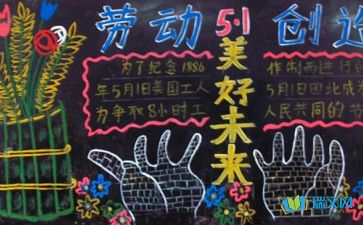 劳动
5·1
创造
美好未来
为了纪念1886
年5月1日美国工人
为争取8小时工
作制而进行
5月1日因此成
人民共同的
瑞文网